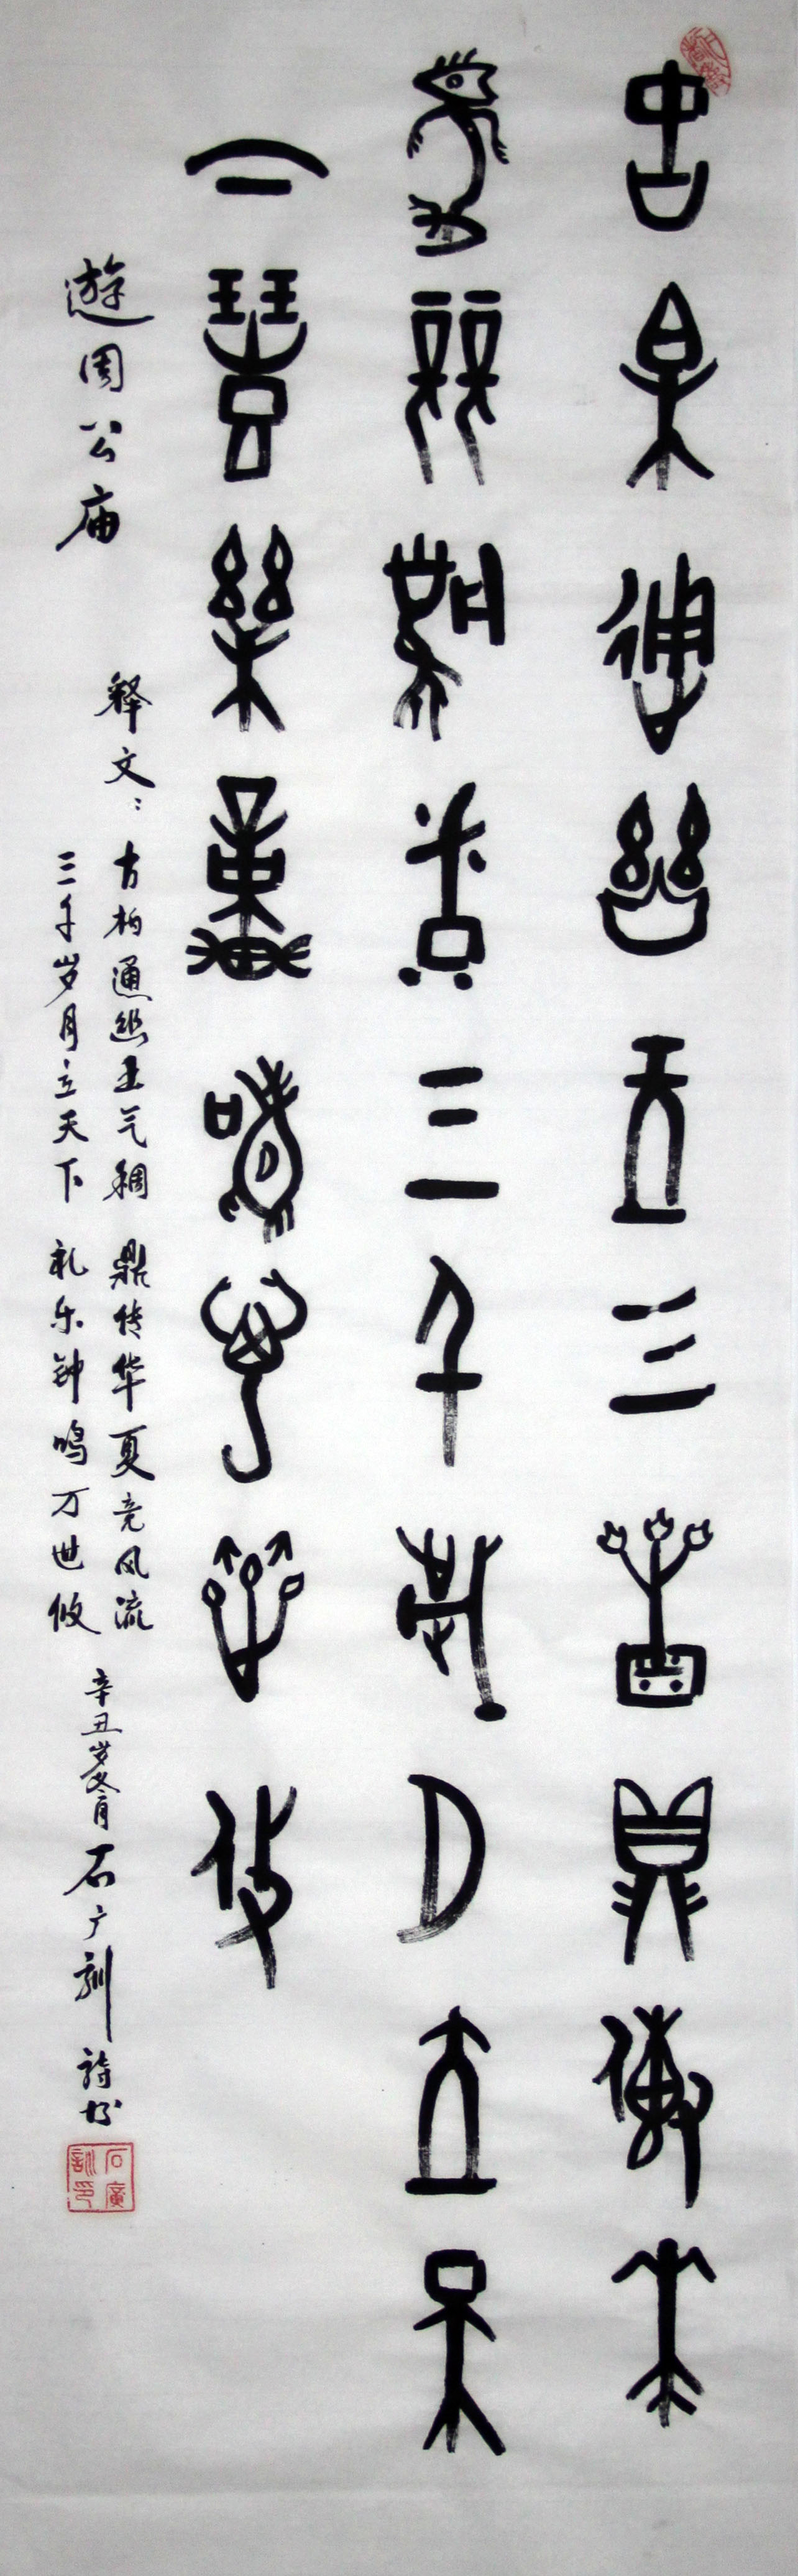 古柏通幽王气稠鼎传华
夏竞风流三千岁月立天
下礼乐钟鸣万世攸
遊周公庙
释文：古柏通幽王气稠 鼎传华夏竞风流
三千岁月立天下 礼乐钟鸣万世攸
辛丑岁冬月石广训詩书
石廣訓印